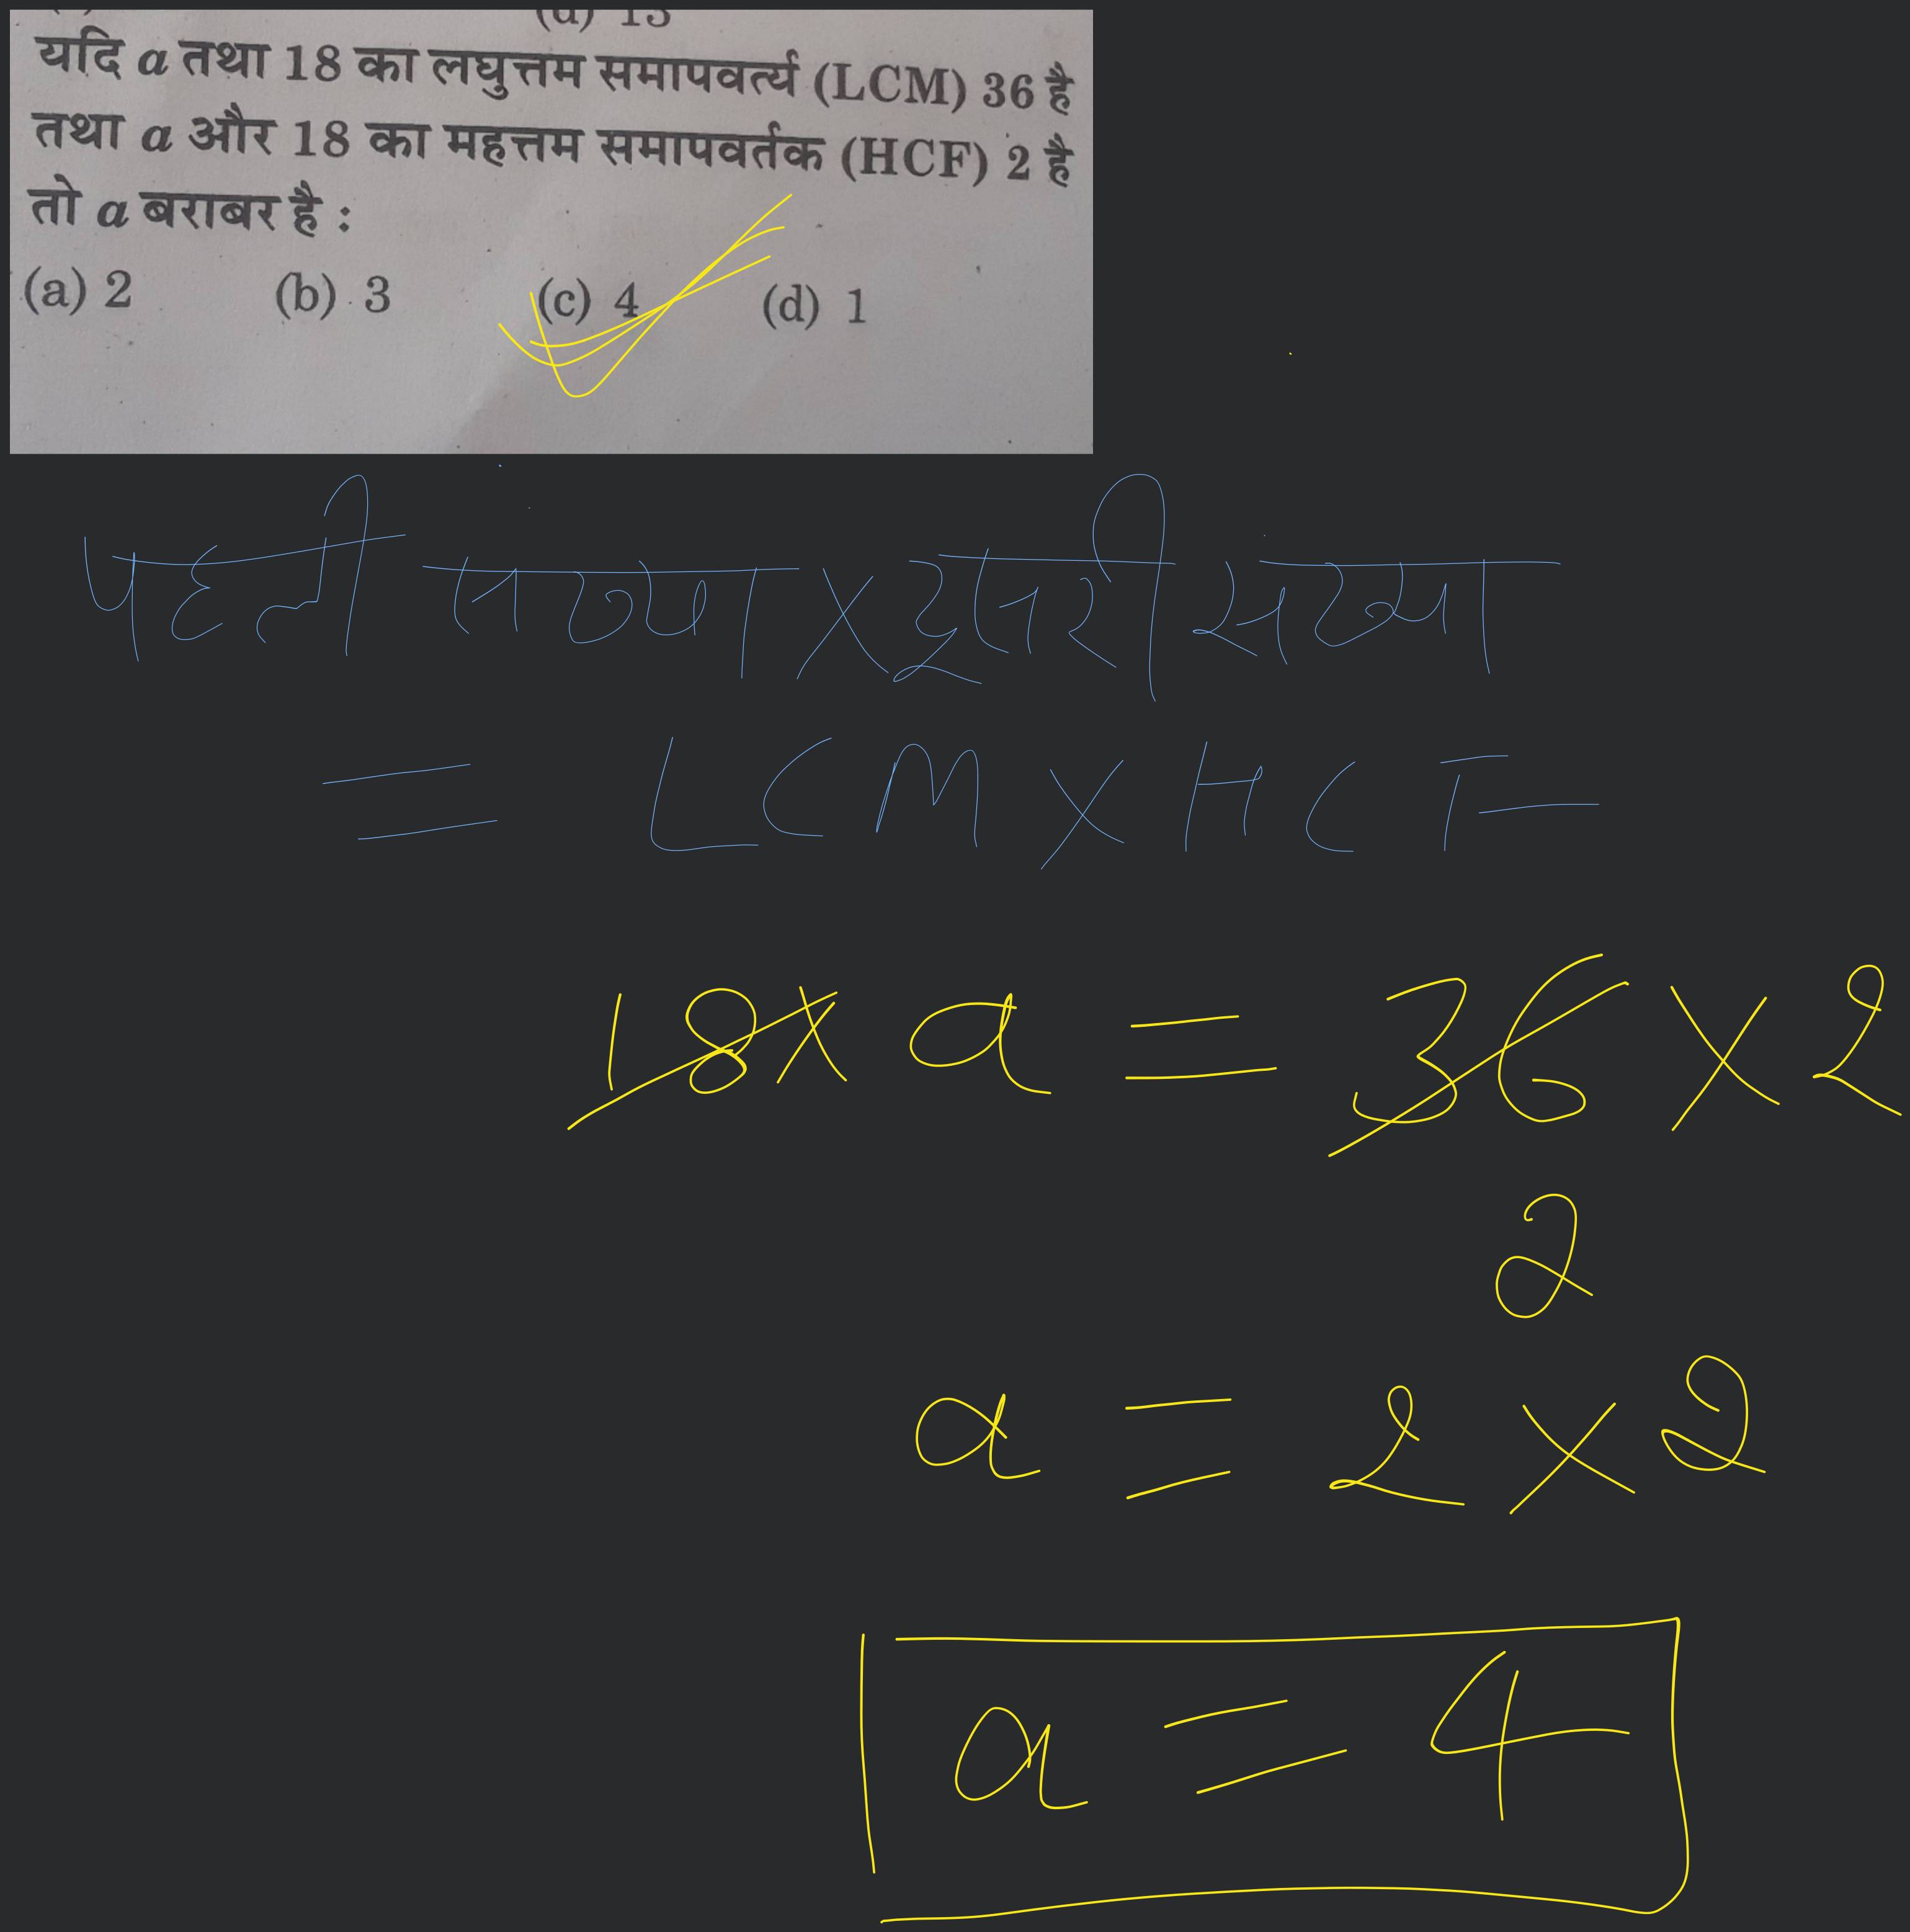 (d) 13
यदि a तथा 18 का लघुत्तम समापवर्त्य (LCM) 36 है
तथा a और 18 का महत्तम समापवर्तक (HCF) 2 है
तो a बराबर है :
(a) 2 (b) 3 (c) 4 (d) 1
पहली संख्या X दूसरी संख्या
= LCM X HCF
18 X a = 36 X 2
2
a = 2 X 2
a = 4